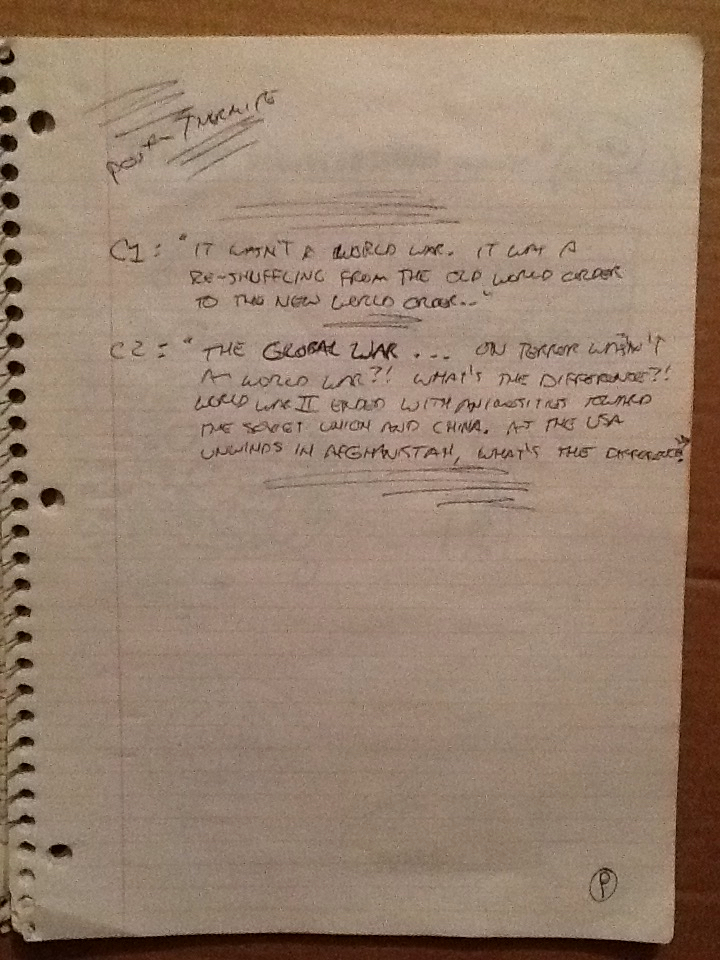 POST-THERMITE
C1: "IT WASN'T A WORLD WAR. IT WAS A
RE-SHUFFLING FROM THE OLD WORLD ORDER
TO THE NEW WORLD ORDER..."
C2: "THE GLOBAL WAR ... ON TERROR WASN'T
A WORLD WAR?! WHAT'S THE DIFFERENCE?!
WORLD WAR II ENDED WITH ANIMOSITIES TOWARD
THE SOVIET UNION AND CHINA. AS THE USA
UNWINDS IN AFGHANISTAN, WHAT'S THE DIFFERENCE?"
P